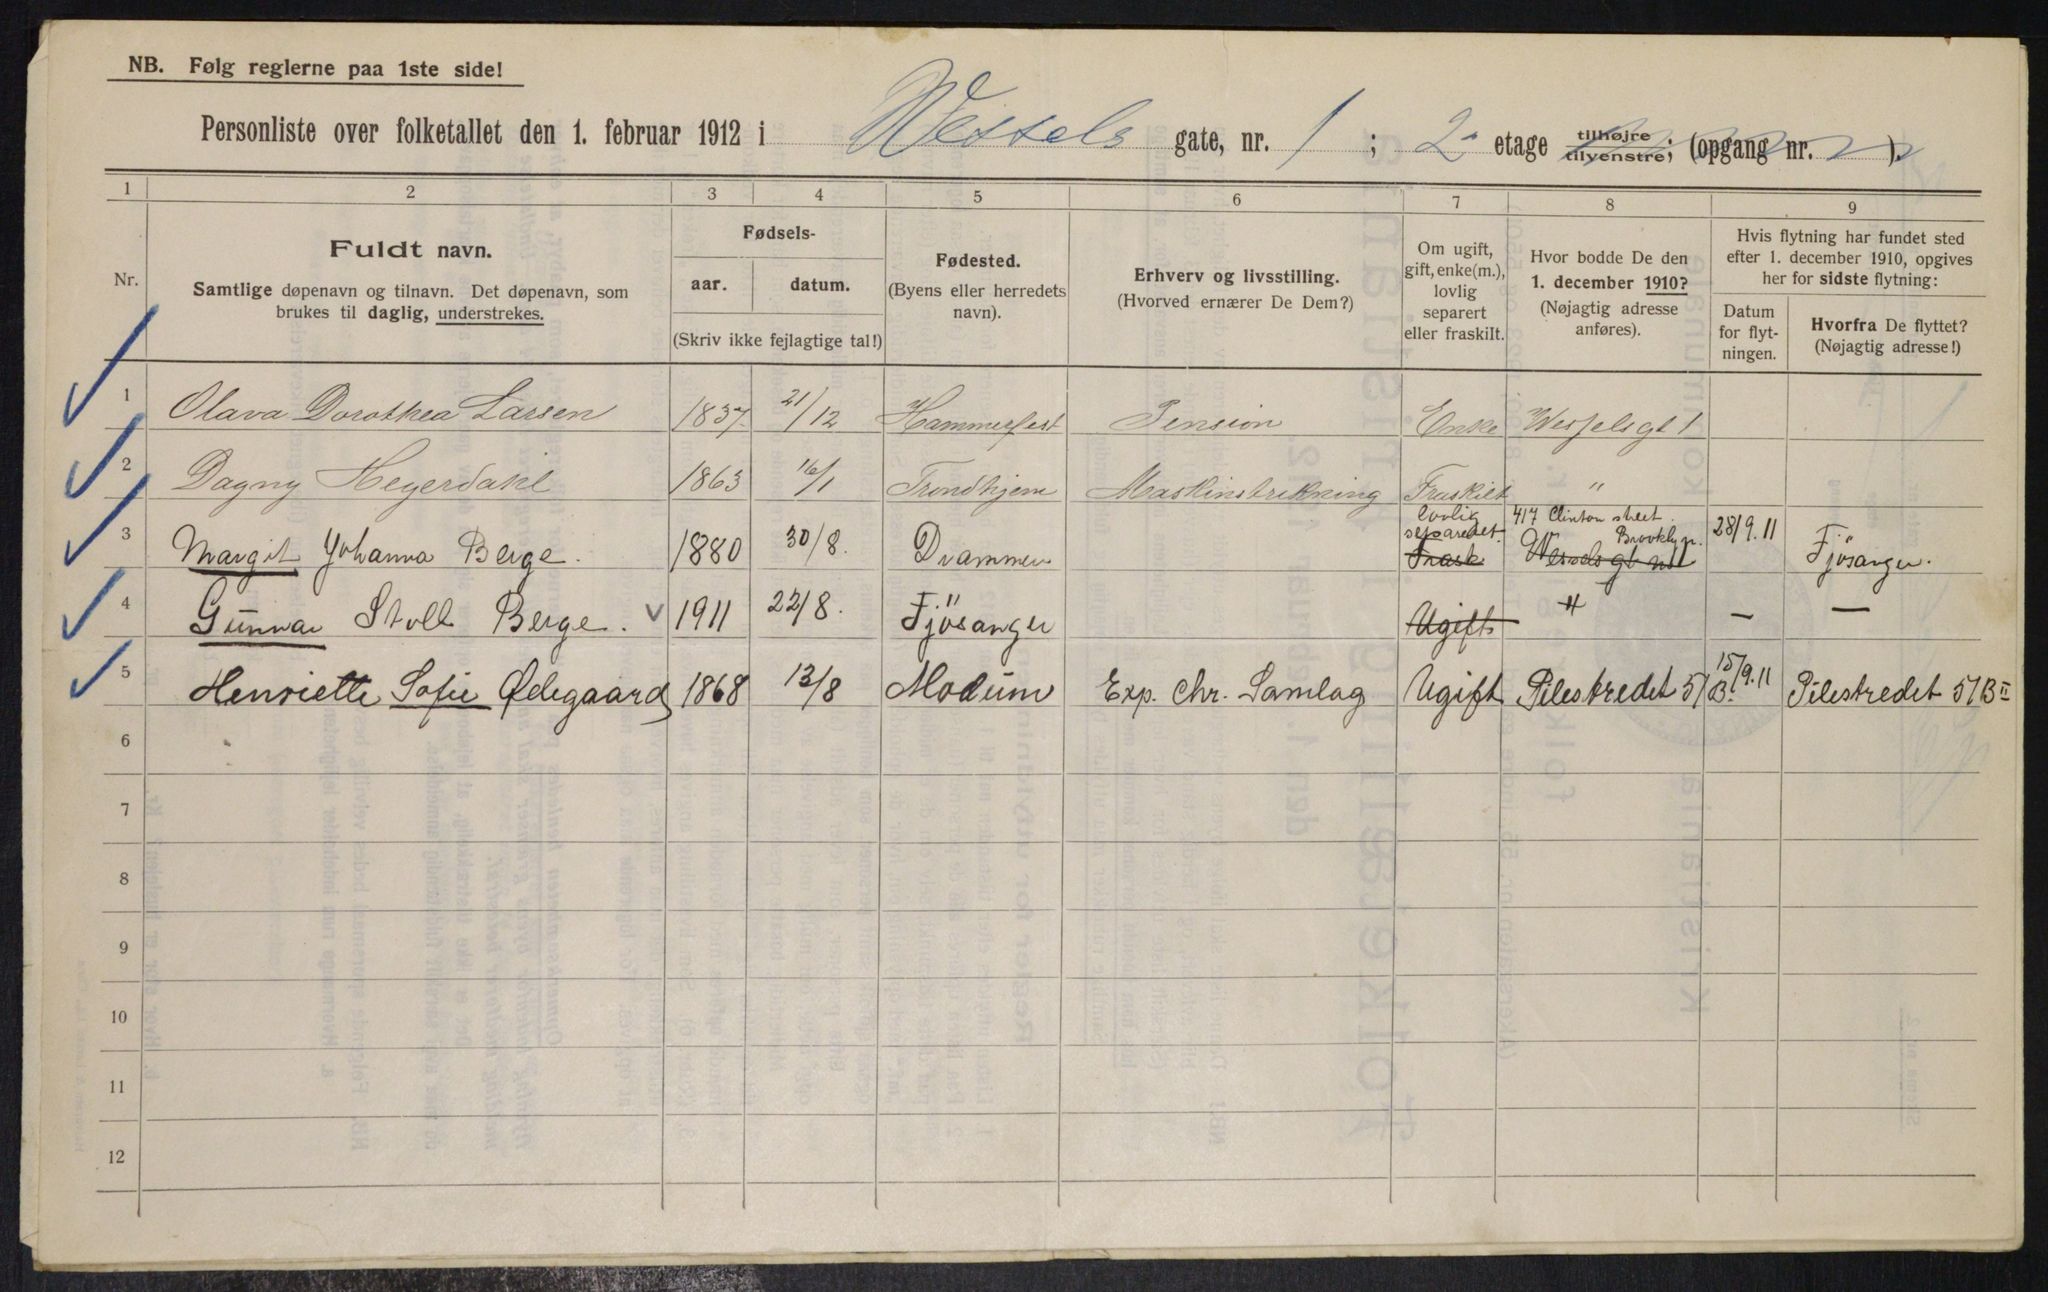 NB. Følg reglerne paa 1ste side!
Personliste over folketallet den 1. februar 1912 i Wessels gate, nr. 1 ; 2 etage tilhøjre tilvenstre; (opgang nr. ).
1 2 3 4 5 6 7 8 9
Nr.
Fuldt navn.
Samtlige døpenavn og tilnavn. Det døpenavn, som
brukes til daglig, understrekes.
Fødsels-
aar. datum.
(Skriv ikke fejlagtige tal!)
Fødested.
(Byens eller herredets
navn).
Erhverv og livsstilling.
(Hvorved ernærer De Dem?)
Om ugift,
gift, enke(m.),
lovlig
separert
eller fraskilt.
Hvor bodde De den
1. december 1910?
(Nøjagtig adresse
anføres).
Hvis flytning har fundet sted
efter 1. december 1910, opgives
her for sidste flytning:
Datum
for flyt-
ningen.
Hvorfra De flyttet?
(Nøjagtig adresse!)
1 Olava Dorothea Larsen 1837 21/12 Hammerfest Pension Enke Wesselsgt 1
2 Dagny Heyerdahl 1863 16/1 Trondhjem Maskinstrikning Fraskilt "
3 Margit Johanna Berge. 1880 30/8. Drammen lovlig separedet. Frask 417 Clinton street. Brooklyn. Wesselsgt no 1 28/9.11 Fjösanger.
4 Gunnar Stoll Berge. v 1911 22/8. Fjösanger Ugift " — —
5 Henriette Sofie Ødegaard 1868 13/8 Modum Exp. Chr. Samlag Ugift Pilestredet 51 B. 15/9.11 Pilestredet 51 B II
6
7
8
9
10
11
12